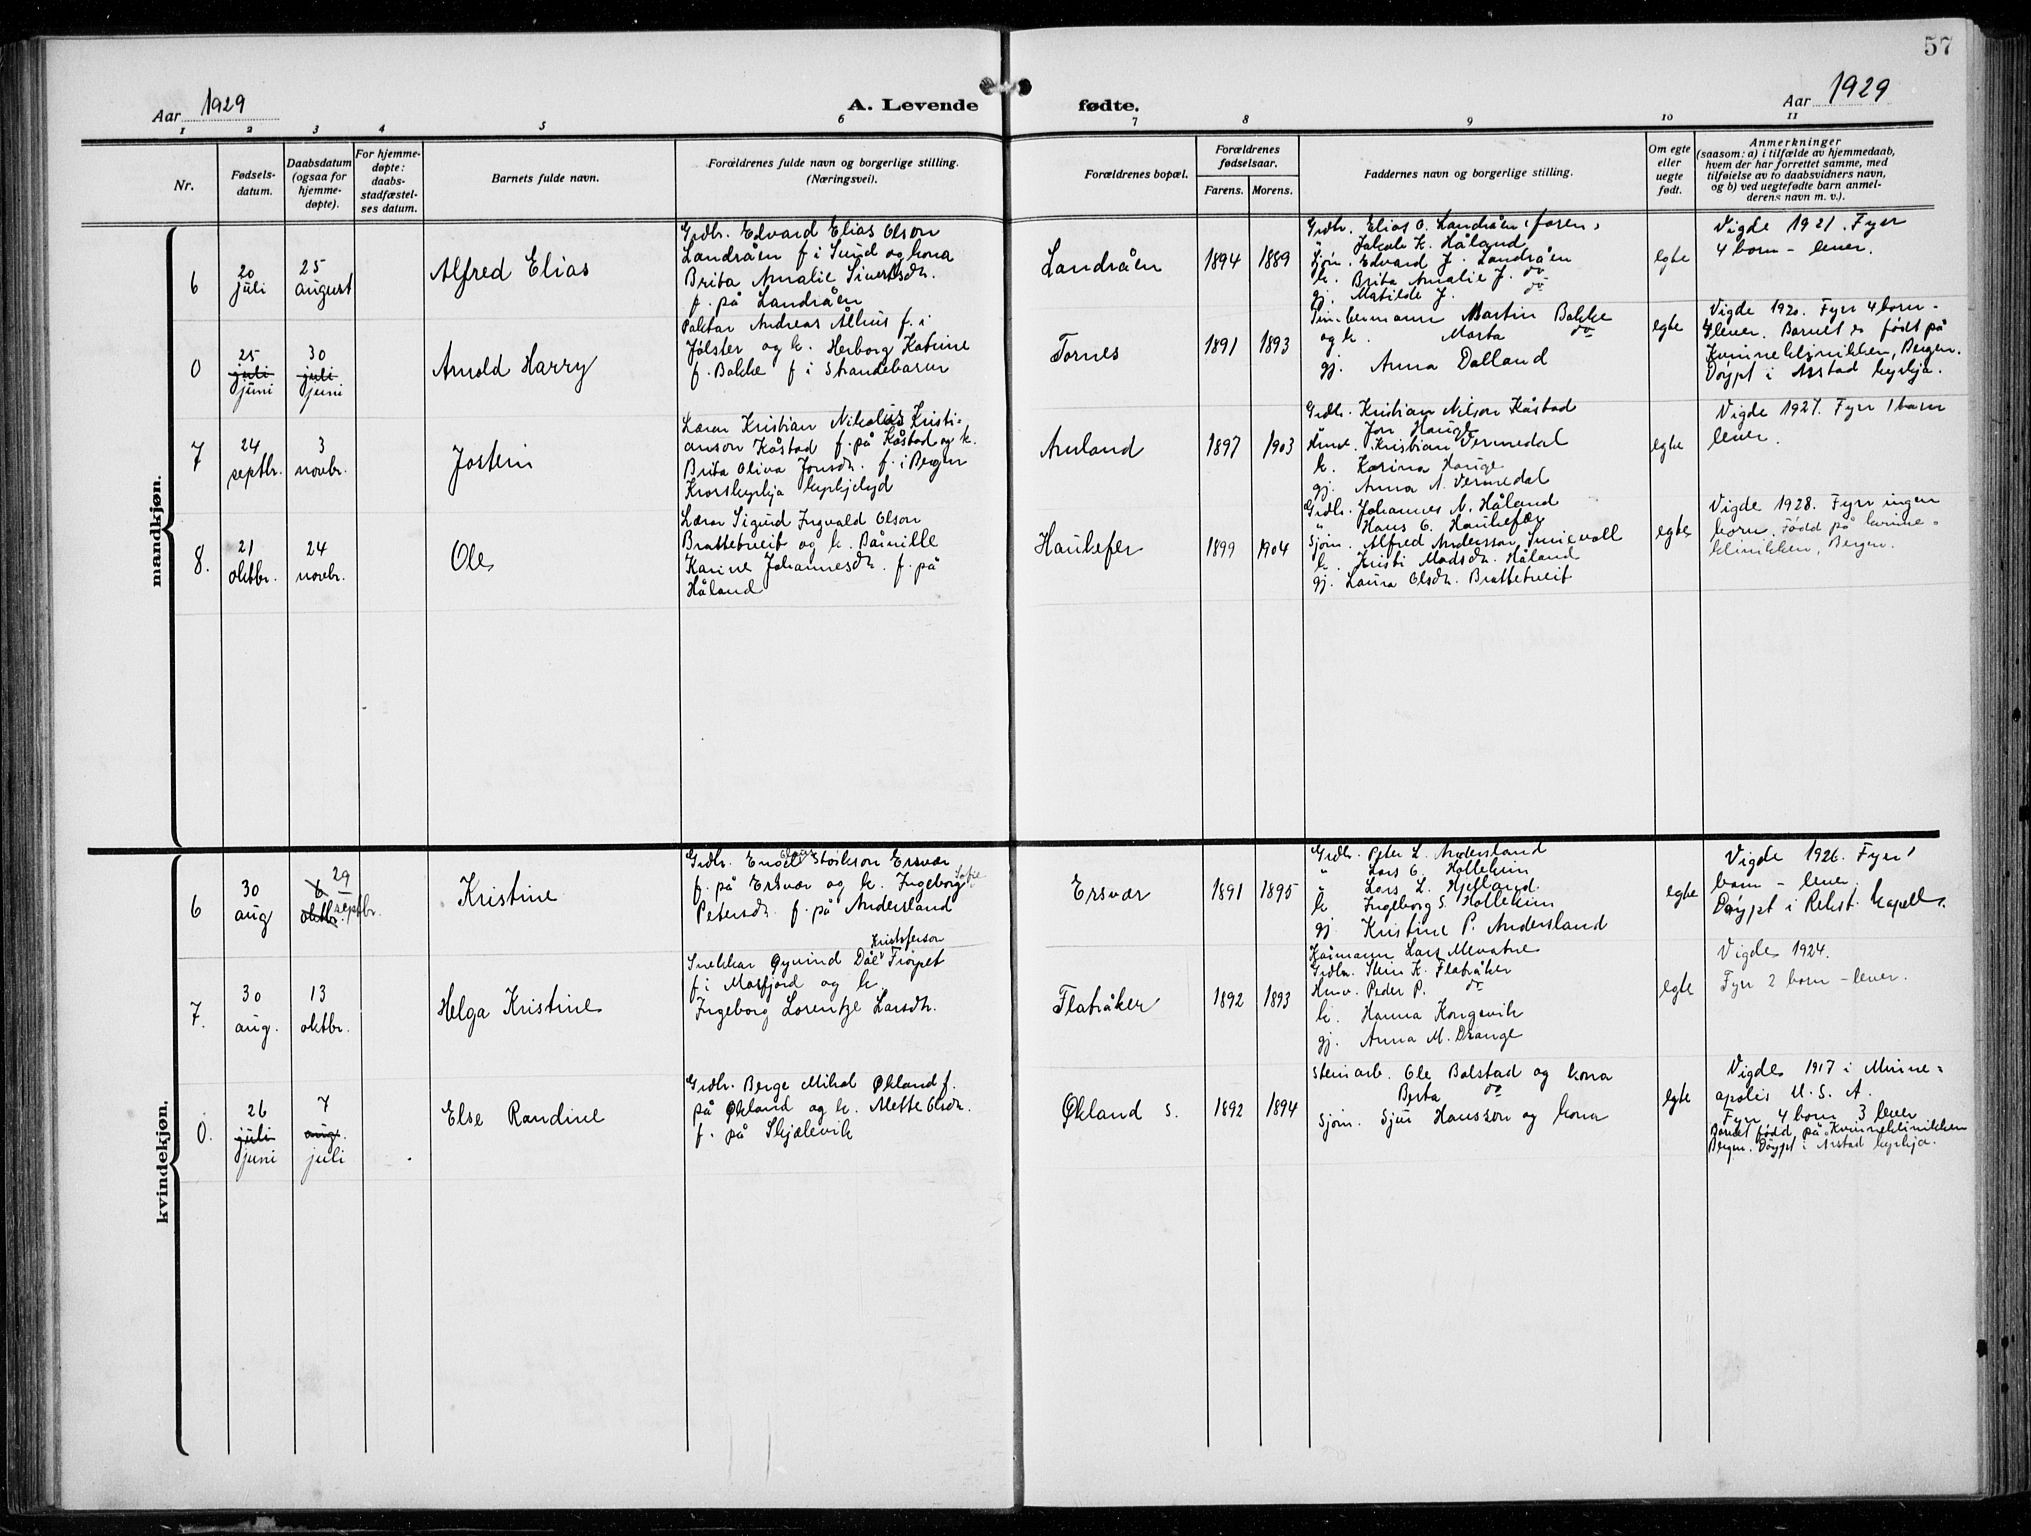 57
Aar 1929
A. Levende fødte.
Aar 1929
1 2 3 4 5 6 7 8 9 10 11
Nr.
Fødsels-
datum.
Daabsdatum
(ogsaa for
hjemme-
døpte).
For hjemme-
døpte:
daabs-
stadfæstel-
ses datum.
Barnets fulde navn.
Forældrenes fulde navn og borgerlige stilling.
(Næringsvei).
Forældrenes bopæl.
Forældrenes
fødselsaar.
Farens. Morens.
Faddernes navn og borgerlige stilling.
Om egte
eller
uegte
født.
Anmerkninger
(saasom: a) i tilfælde av hjemmedaab,
hvem der har forrettet samme, med
tilføielse av to daabsvidners navn,
og b) ved uegtefødte barn anmel-
derens navn m. v.).
mandkjøn.
6
20
juli
25
august
Alfred Elias
Grdbr. Edvard Elias Olson
Landråen f. i Sund og kona
Brita Amalie Sivertsdtr.
f. på Landråen
Landråen
1894 1889
Grdbr. Elias O. Landråen, faren,
" Jakob K. Håland
Sjøm. Edvard J. Landråen
k. Brita Amalie J. do
gj. Matilde J. do
egte
Vigde 1921. Fyrr
4 born - lever.
0
25
juli
juni
30
juli
juni
Arnold Harry
Andreas Ålhus f. i
Jølster og k. Herborg Katrine
f. Bakke f. i Strandebarm
Tornes
1891 1893
Timbermann Martin Bakke
og k. Marta do
gj. Anna Dalland
egte
Vigde 1920. Fyrr 4 born -
lever. Barnet er født på
Kvinneklinikken, Bergen.
Døypt i Årstad kyrkja.
7
24
septbr.
3
novbr.
Jostein
Lærar Kristian Nikolas Kristi-
anson Kåstad f. på Kåstad og k.
Brita Oliva Jonsdtr. f. i Bergen
Krosskyrkja kyrkjelyd
Amland
1897 1903
Grdbr. Kristian Nilson Kåstad
Jon Hauge
Kristian Vermedal
k. Karina Hauge
gj. Anna N. Vermedal
egte
Vigde 1927. Fyrr 1 barn
lever.
8.
21
oktbr.
24
novbr.
Ole
Lærar Sigurd Ingvald Olson
Bratteteit og k.
Karine Johannesdtr. f. på
Håland
Haukefer
1899 1904
Grdbr. Johannes N. Håland
" Hans O. Haukefær
Sjøm. Alfred Andersson,
k. Kristi Madsdtr. Håland
gj. Laura Olsdtr. Bratteteit
egte
Vigde 1928. Fyrr ingen
born. Fødd på kvinne-
klinikken, Bergen.
kvindekjøn.
6
30
aug
6 29
oktbr. septbr.
Kristine
Grdbr. Engel Størkson Ersvær
f. på Ersvær og k. Ingeborg Sofie
Petersdtr. f. på Andersland
Ersvær
1891 1895
Grdbr. Peter L. Andersland
" Lars O. Hollekim
" Lars L. Hjelland.
k. Ingeborg S. Hollekim
gj. Kristine P. Andersland
egte
Vigde 1926. Fyrr 1
barn - lever.
Døypt i Rekst. kapell.
7.
30
aug.
13
oktbr.
Helga Kristine
Kristofferson
Snekkar Øyvind Dåe Frøyset
f. i Masfjord og k.
Ingeborg Lorentze Larsdtr.
Flatråker
1892 1893
Lars Mevatne
Grdbr. Stein K. Flatråker
Peder P. do
k. Hanna Kongsvik
gj. Anna M. Drange
egte
Vigde 1924.
Fyrr 2 born - lever.
0.
26
juli
juni
7
aug.
juli
Else Randine
Grdbr. Berge Mikal Økland f.
på Økland og k. Mette Olsdtr.
f. på Skjælevik
Økland s.
1892 1894
Steinarb. Ole Bolstad og kona
Berta do
Sjøm. Sjur Hansson og kona
egte
Vigde 1917 i Minne-
apolis U. S. A.
Fyrr 4 born 3 lever
Barnet fødd på Kvinneklinikken
Bergen. Døypt i Årstad kyrkja.